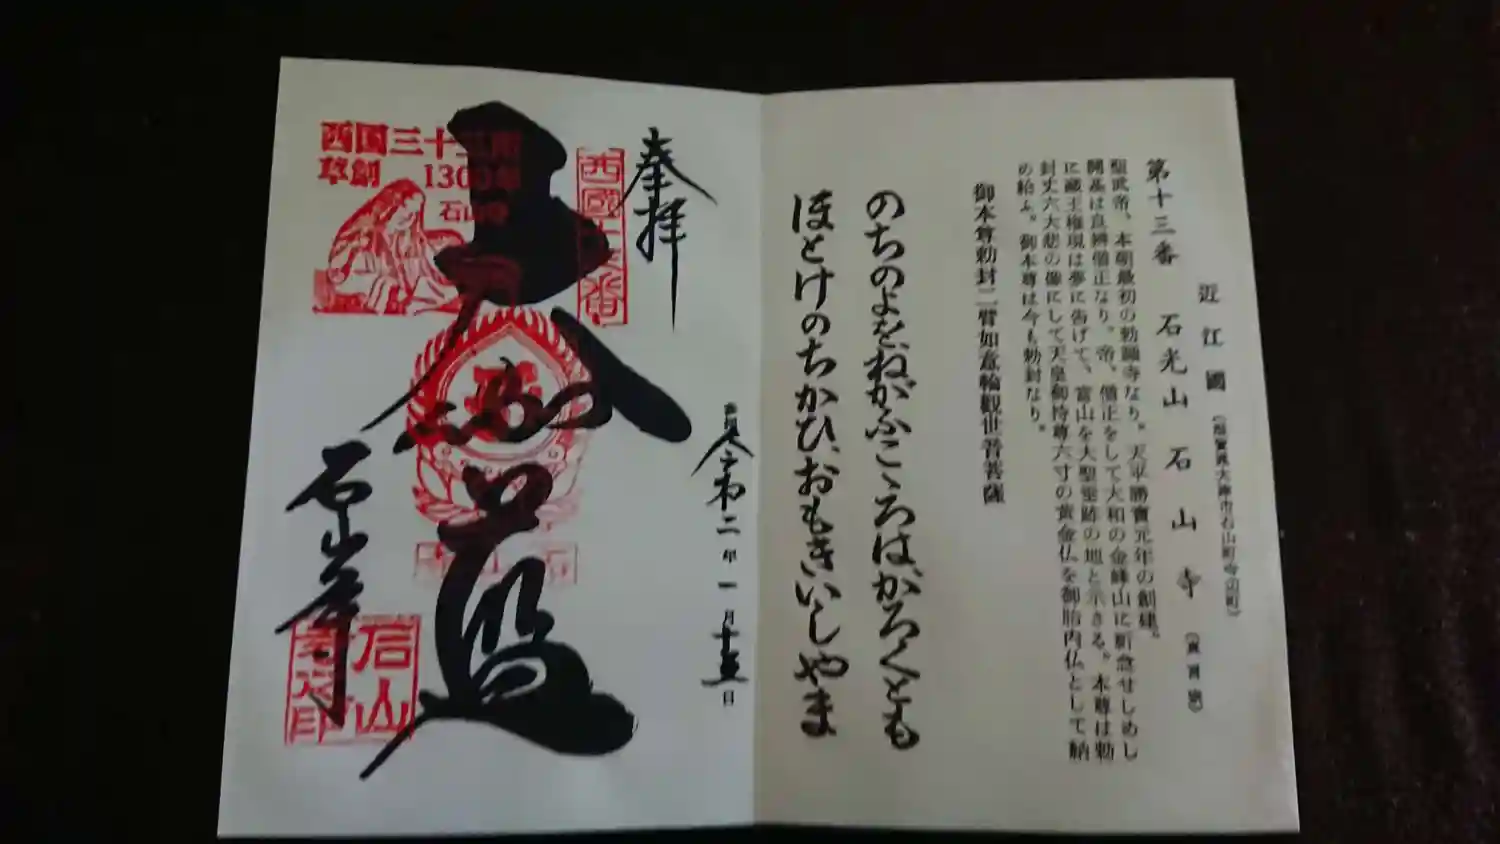 近江國(滋賀県大津市石山町寺辺町)
第十三番 石光山 石山寺(真言宗)
聖武帝、本朝最初の勅願寺なり。天平勝寶元年の創建。
開基は良辨僧正なり。帝、僧正をして大和の金峰山に祈念せしめし
に蔵王権現は夢に告げて、當山を大聖垂跡の地と示さる。本尊は勅
封丈六大悲の像にして天皇御持尊六寸の黄金仏を御胎内仏として納
め給ふ。御本尊は今も勅封なり。
御本尊勅封二臂如意輪觀世音菩薩
のちのよをねがふこゝろはかろくとも
ほとけのちかひおもきいしやま
奉拝
西國十三番
令和二年一月十五日
西国三十三所
草創1300年
石山寺
石山寺
石山
寺
印